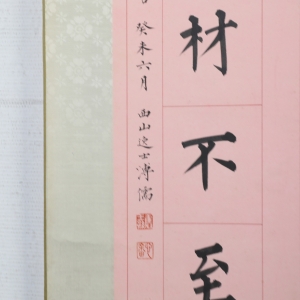 材不至
癸未六月 西山逸士溥儒